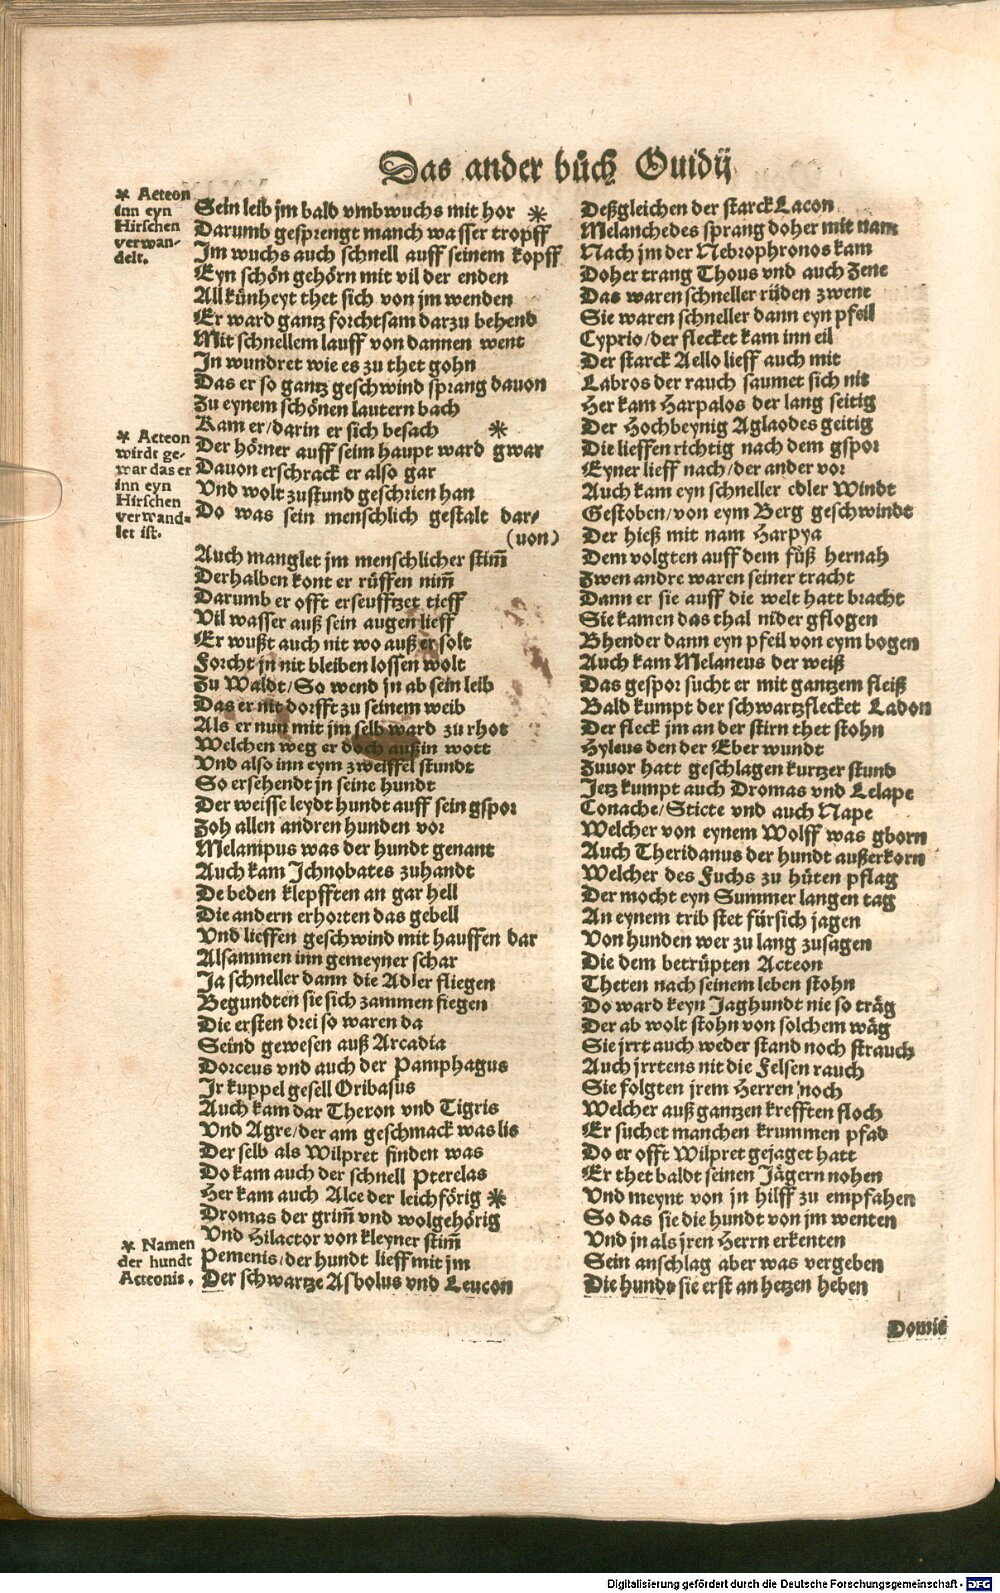 Das ander bůch Ouidij
* Acteon
inn eyn
Hirschen
verwan-
delt.
Sein leib jm bald vmbwuchs mit hor *
Darumb gesprengt manch wasser tropff
Im wuchs auch schnell auff seinem kopff
Eyn schön gehörn mit vil der enden
All künheyt thet sich von jm wenden
Er ward gantz forchtsam darzu behend
Mit schnellem lauff von dannen went
In wundret wie es zu thet gohn
Das er so gantz geschwind sprang dauon
Zu eynem schönen lautern bach
Kam er/darin er sich besach *
* Acteon
wirdt ge-
war das er
inn eyn
Hirschen
verwand-
let ist.
Der hörner auff seim haupt ward gwar
Dauon erschrack er also gar
Vnd wolt zustund geschrien han
Do was sein menschlich gestalt dar/
(uon)
Auch manglet jm menschlicher stim̃
Derhalben kont er rüffen nim̃
Darumb er offt erseufftzet tieff
Vil wasser auß sein augen lieff
Er wußt auch nit wo auß er solt
Forcht jn nit bleiben lossen wolt
Zu Waldt/So wend jn ab sein leib
Das er nit dorfft zu seinem weib
Als er nun mit jm selb ward zu rhot
Welchen weg er doch außin wott
Vnd also inn eym zweiffel stundt
So ersehendt jn seine hundt
Der weisse leydt hundt auff sein gspor
Zoh allen andren hunden vor
Melampus was der hundt genant
Auch kam Ichnobates zuhandt
De beden klepfften an gar hell
Die andern erhorten das gebell
Vnd lieffen geschwind mit hauffen dar
Alsammen inn gemeyner schar
Ja schneller dann die Adler fliegen
Begundten sie sich zammen fiegen
Die ersten drei so waren da
Seind gewesen auß Arcadia
Dorceus vnd auch der Pamphagus
Ir kuppel gesell Oribasus
Auch kam dar Theron vnd Tigris
Vnd Agre/der am geschmack was lis
Der selb als Wilpret finden was
Do kam auch der schnell Pterelas
Her kam auch Alce der leichförig *
Dromas der grim̃ vnd wolgehörig
* Namen
der hundt
Acteonis.
Vnd Hilactor von kleyner stim̃
Pemenis/der hundt lieff mit jm
Der schwartze Asbolus vnd Leucon
Deßgleichen der starck Lacon
Melanchedes sprang doher mit nam
Nach jm der Nebrophronos kam
Doher trang Thous vnd auch Zene
Das waren schneller rüden zwene
Sie waren schneller dann eyn pfeil
Cyprio/der flecket kam inn eil
Der starck Aello lieff auch mit
Labros der rauch saumet sich nit
Her kam Harpalos der lang seitig
Der Hochbeynig Aglaodes geitig
Die lieffen richtig nach dem gspor
Eyner lieff nach/der ander vor
Auch kam eyn schneller edler Windt
Gestoben/von eym Berg geschwindt
Der hieß mit nam Harpya
Dem volgten auff dem fůß hernah
Zwen andre waren seiner tracht
Dann er sie auff die welt hatt bracht
Sie kamen das thal nider gflogen
Bhender dann eyn pfeil von eym bogen
Auch kam Melaneus der weiß
Das gespor sucht er mit gantzem fleiß
Bald kumpt der schwartzflecket Ladon
Der fleck jm an der stirn thet stohn
Hyleus den der Eber wundt
Zuuor hatt geschlagen kurtzer stund
Jetz kumpt auch Dromas vnd Lelape
Conache/Sticte vnd auch Nape
Welcher von eynem Wolff was gborn
Auch Theridanus der hundt außerkorn
Welcher des Fuchs zu hüten pflag
Der mocht eyn Summer langen tag
An eynem trib stet fürsich jagen
Von hunden wer zu lang zusagen
Die dem betrüpten Acteon
Theten nach seinem leben stohn
Do ward keyn Jaghundt nie so träg
Der ab wolt stohn von solchem wäg
Sie jrrt auch weder stand noch strauch
Auch jrrtens nit die Felsen rauch
Sie folgten jrem Herren noch
Welcher auß gantzen krefften floch
Er suchet manchen krummen pfad
Do er offt Wilpret gejaget hatt
Er thet baldt seinen Jägern nohen
Vnd meynt von jn hilff zu empfahen
So das sie die hundt von jm wenten
Vnd jn als jren Herrn erkenten
Sein anschlag aber was vergeben
Die hunds sie erst an hetzen heben
Domit
Digitalisierung gefördert durch die Deutsche Forschungsgemeinschaft - DFG